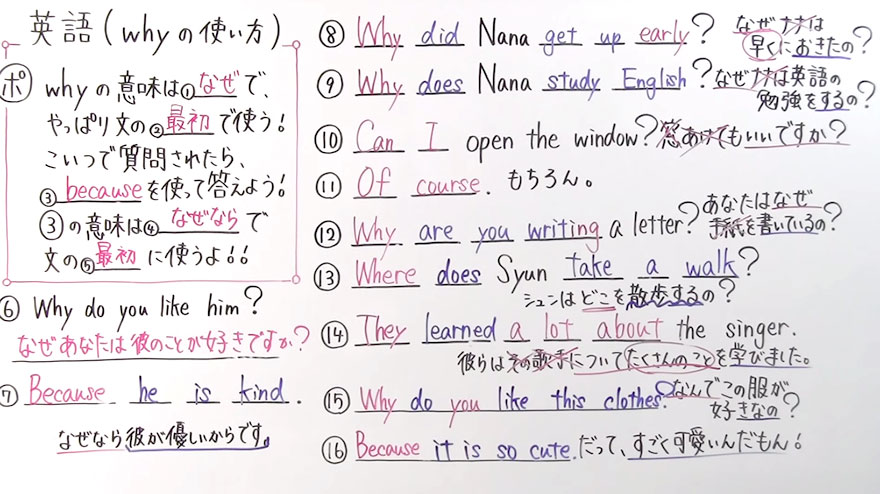 英語(whyの使い方)
ポ whyの意味は①なぜで、
やっぱり文の②最初で使う!
こいつで質問されたら、
③becauseを使って答えよう!
③の意味は④なぜならで
文の⑤最初に使うよ!!
⑥ Why do you like him?
なぜあなたは彼のことが好きですか?
⑦ Because he is kind.
なぜなら彼が優しいからです。
⑧ Why did Nana get up early? なぜナナは
早くにおきたの?
⑨ Why does Nana study English? なぜナナは英語の
勉強をするの?
⑩ Can I open the window? 窓あけてもいいですか?
⑪ Of course. もちろん。
⑫ Why are you writing a letter? あなたはなぜ
手紙を書いているの?
⑬ Where does Syun take a walk?
シュンはどこを散歩するの?
⑭ They learned a lot about the singer.
彼らはその歌手についてたくさんのことを学びました。
⑮ Why do you like this clothes? なんでこの服が
好きなの?
⑯ Because it is so cute. だって、すごく可愛いんだもん!